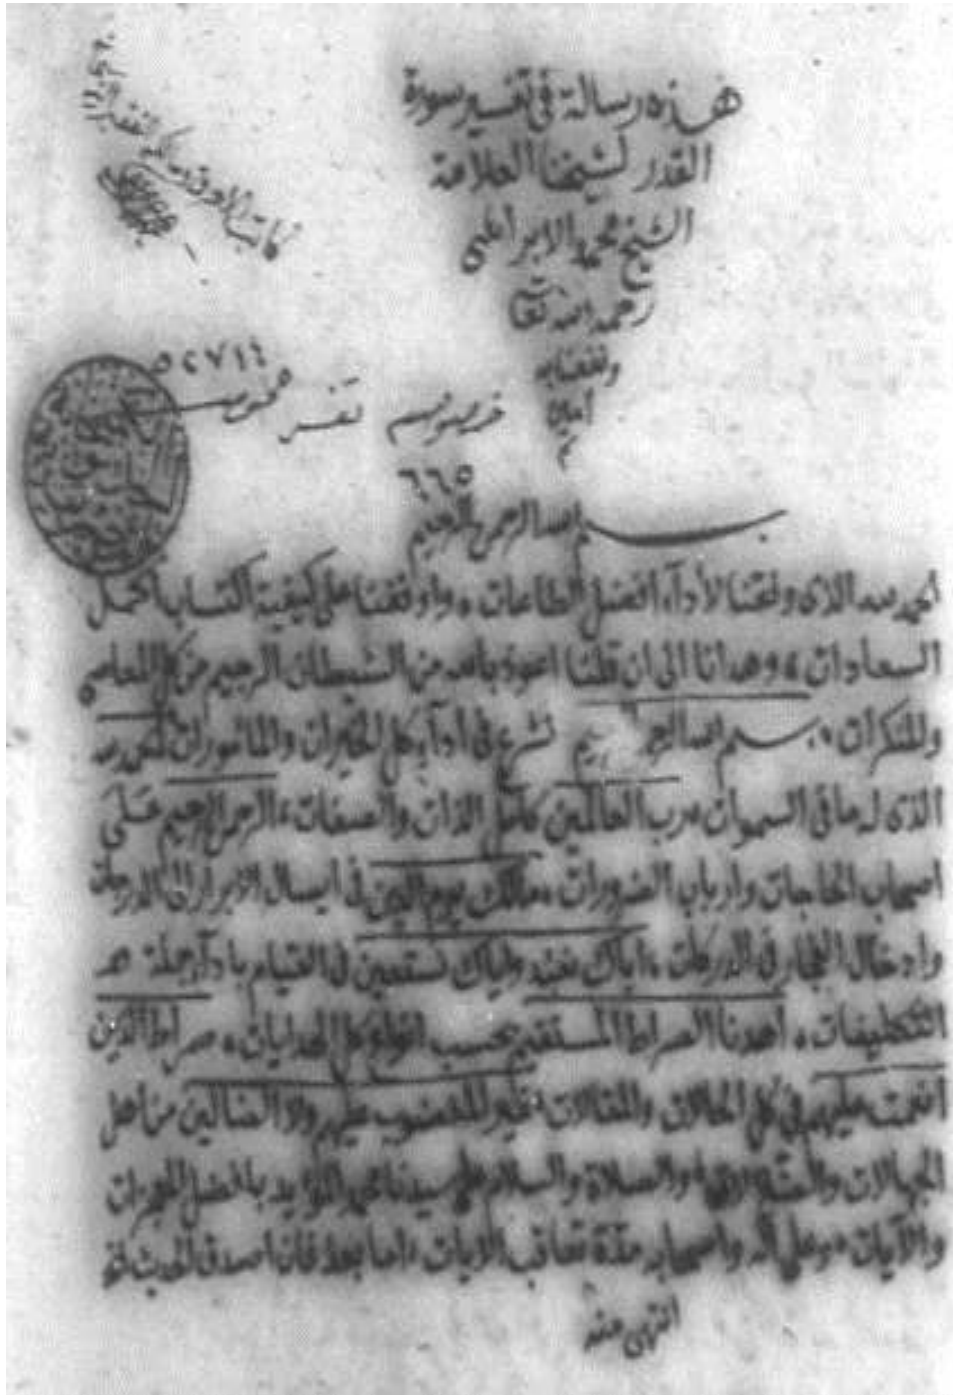 هذه رسالة في تفسير سورة
القدر لشيخنا العلامة
الشيخ محمد الابراهيمي
رحمه الله تعا
ونفعنا به
امين
م
٥٢٧١٤
خصوصيه تفسير
٦٦٥
بسم الله الرحمن الرحيم
الحمد لله الذى وفقنا لأدآء افضل الطاعات، واوقفنا على كيفية اكتساب اكمل
السعادات، وهدانا الى ان قلنا اعوذ بالله من الشيطان الرجيم من كل المعاصى
والمنكرات، بسم الله الرحيم نشرع فى ادآء كل الخيرات والمامورات الحمد لله
الذى له ما فى السموات رب العالمين كامل الذات والصفات، الرحمن الرحيم على
اصحاب الحاجات وارباب الضرورات، مالك يوم الدين فى ايصال الابرار الى الدرجات
وادخال الفجار فى الدركات، اياك نعبد واياك نستعين فى القيام بادآء جملة
التكليفات، اهدنا الصراط المستقيم بحسب انواع كل الهدايات، صراط الذين
انعمت عليهم فى كل الحالات والمقالات غير المغضوب عليهم ولا الضالين من اهل
الجهالات والصلاة والسلام على سيدنا محمد المؤيد بافضل المعجزات
والآيات، وعلى آله واصحابه مدة تعاقب الاوقات، اما بعد فان اصدق الحديث
انتهى منه